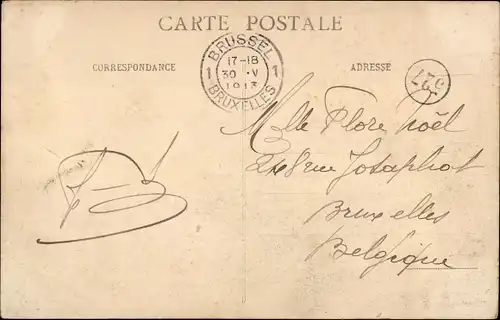 CARTE POSTALE
CORRESPONDANCE
ADRESSE
BRUSSEL
17-18
1 30 · V 1
1913
BRUXELLES
227
Melle Flore Noël
rue Josaphat
Bruxelles
Belgique